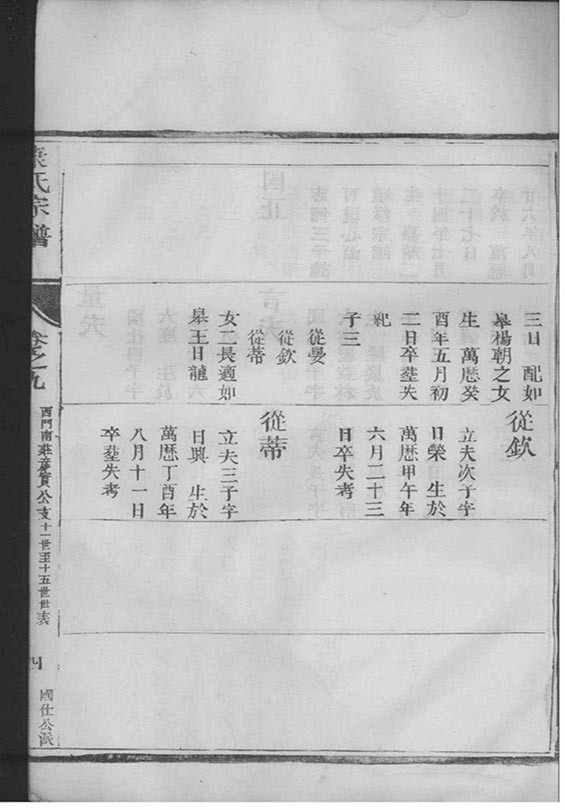 三日 配如
皋楊朝之女
生 萬厯癸
酉年五月初
二日卒塟失
祀
子三
從晏
從欽
從蒂
女二長適如
皋王日龍
從欽
立夫次子字
日榮 生於
萬厯甲午年
六月二十三
日卒失考
從蒂
立夫三子字
日興 生於
萬厯丁酉年
八月十一日
卒塟失考
氏宗譜
卷之九
西門南莊彥賓公支十一世至十五世世表
國仕公派